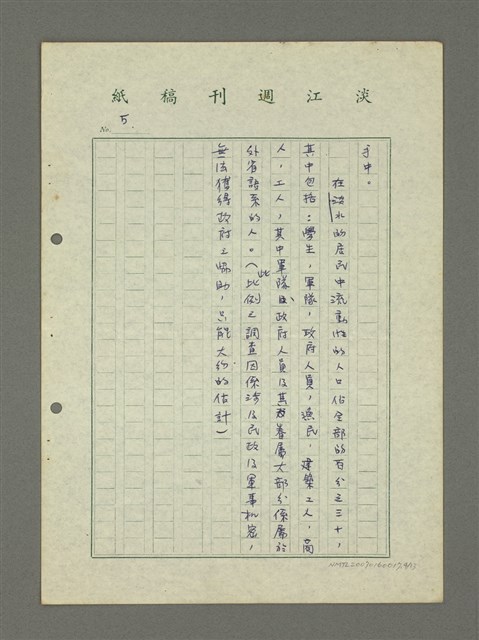 淡江週刊稿紙
No. 5.
手中。
在淡水的居民中流動性的人口佔全部的百分之三十，
其中包括：學生，軍隊，政府人員，漁民，建築工人，商
人，工人，其中軍隊、政府人員及其眷屬大部分係屬於
外省語系的人。（此比例之調查因係涉及民政及軍事机密，
無法獲得政府之協助，只能大約的估計）